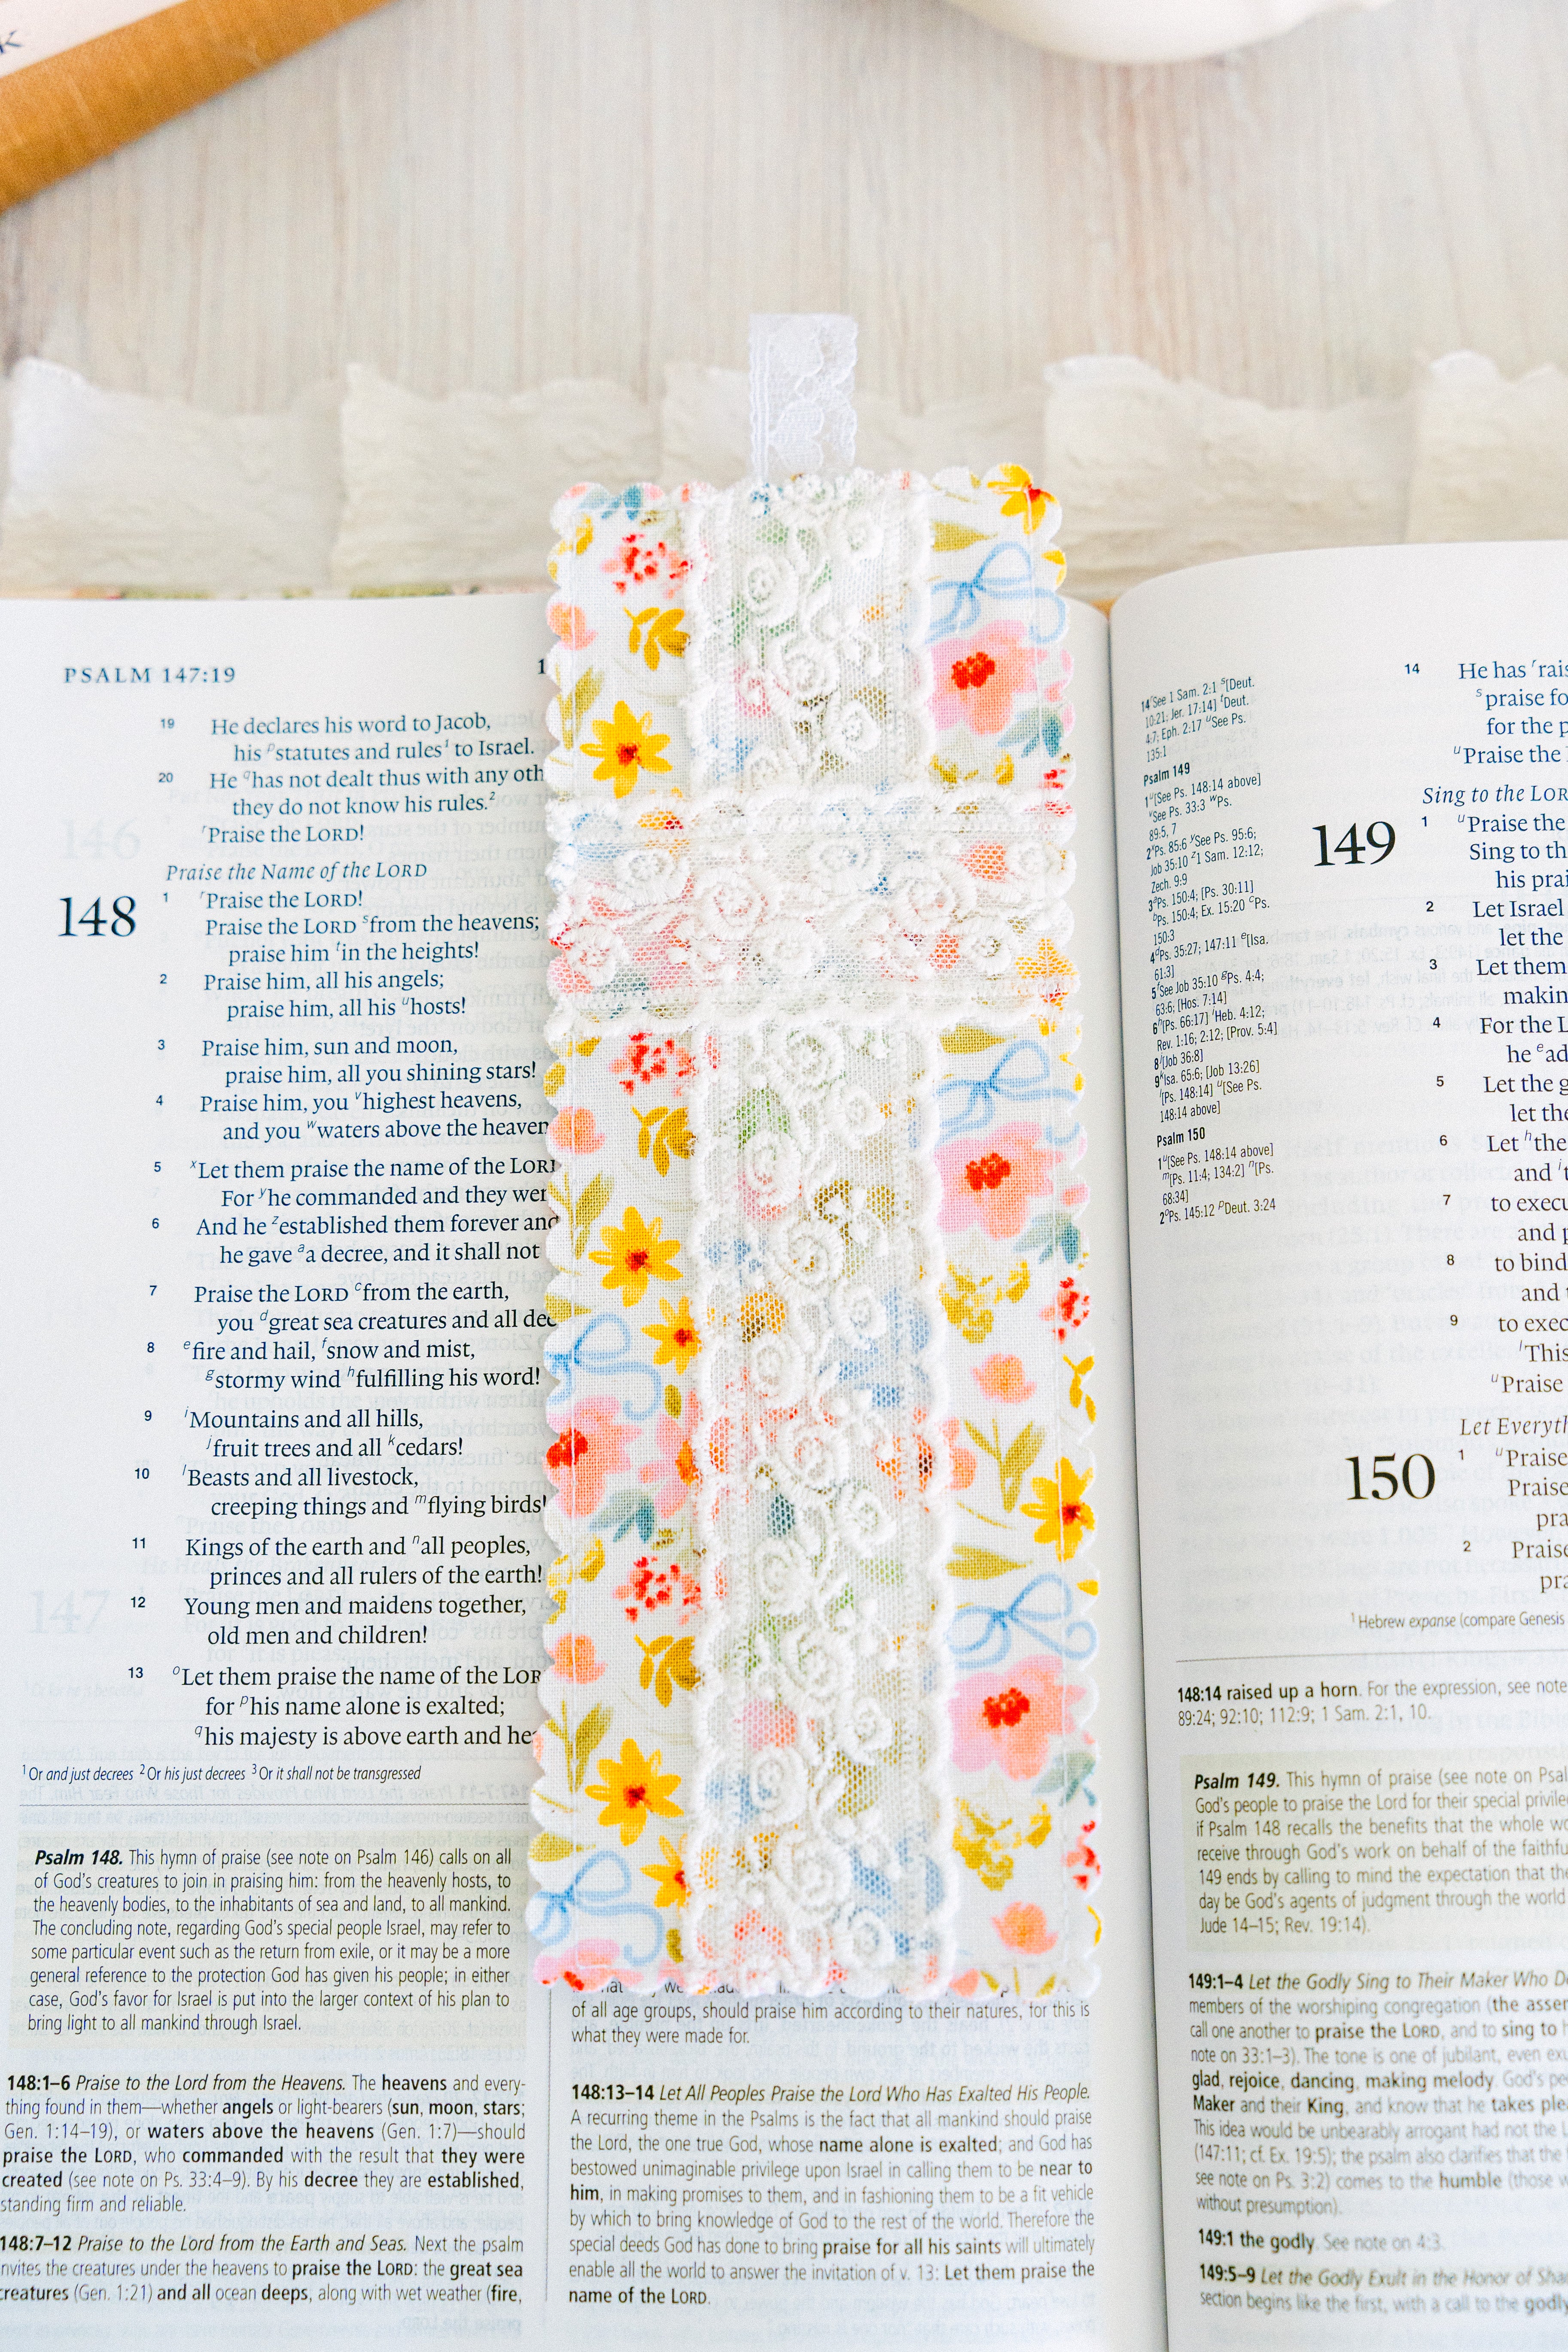 K
PSALM 147:19
1
19 He declares his word to Jacob,
his pstatutes and rules1 to Israel.
20 He qhas not dealt thus with any oth
they do not know his rules.2
rPraise the LORD!
Praise the Name of the LORD
148
1 rPraise the LORD!
Praise the LORD sfrom the heavens;
praise him tin the heights!
2 Praise him, all his angels;
praise him, all his uhosts!
3 Praise him, sun and moon,
praise him, all you shining stars!
4 Praise him, you vhighest heavens,
and you wwaters above the heaven
5 xLet them praise the name of the LORD
For yhe commanded and they wer
6 And he zestablished them forever and
he gave aa decree, and it shall not
7 Praise the LORD cfrom the earth,
you dgreat sea creatures and all dee
8 efire and hail, fsnow and mist,
gstormy wind hfulfilling his word!
9 iMountains and all hills,
jfruit trees and all kcedars!
10 lBeasts and all livestock,
creeping things and mflying birds!
11 Kings of the earth and nall peoples,
princes and all rulers of the earth!
12 Young men and maidens together,
old men and children!
13 oLet them praise the name of the LOR
for phis name alone is exalted;
qhis majesty is above earth and he
1 Or and just decrees 2 Or his just decrees 3 Or it shall not be transgressed
Psalm 148. This hymn of praise (see note on Psalm 146) calls on all
of God's creatures to join in praising him: from the heavenly hosts, to
the heavenly bodies, to the inhabitants of sea and land, to all mankind.
The concluding note, regarding God's special people Israel, may refer to
some particular event such as the return from exile, or it may be a more
general reference to the protection God has given his people; in either
case, God's favor for Israel is put into the larger context of his plan to
bring light to all mankind through Israel.
148:1–6 Praise to the Lord from the Heavens. The heavens and every-
thing found in them—whether angels or light-bearers (sun, moon, stars;
Gen. 1:14–19), or waters above the heavens (Gen. 1:7)—should
praise the LORD, who commanded with the result that they were
created (see note on Ps. 33:4–9). By his decree they are established,
standing firm and reliable.
148:7–12 Praise to the Lord from the Earth and Seas. Next the psalm
nvites the creatures under the heavens to praise the LORD: the great sea
creatures (Gen. 1:21) and all ocean deeps, along with wet weather (fire,
of all age groups, should praise him according to their natures, for this is
what they were made for.
148:13–14 Let All Peoples Praise the Lord Who Has Exalted His People.
A recurring theme in the Psalms is the fact that all mankind should praise
the Lord, the one true God, whose name alone is exalted; and God has
bestowed unimaginable privilege upon Israel in calling them to be near to
him, in making promises to them, and in fashioning them to be a fit vehicle
by which to bring knowledge of God to the rest of the world. Therefore the
special deeds God has done to bring praise for all his saints will ultimately
enable all the world to answer the invitation of v. 13: Let them praise the
name of the LORD.
14 rSee 1 Sam. 2:1 s[Deut.
10:21; Jer. 17:14] tDeut.
4:7; Eph. 2:17 uSee Ps.
135:1
Psalm 149
1 u[See Ps. 148:14 above]
vSee Ps. 33:3 wPs.
89:5, 7
2 xPs. 85:6 ySee Ps. 95:6;
Job 35:10 z1 Sam. 12:12;
Zech. 9:9
3 aPs. 150:4; [Ps. 30:11]
bPs. 150:4; Ex. 15:20 cPs.
150:3
4 dPs. 35:27; 147:11 e[Isa.
61:3]
5 fSee Job 35:10 gPs. 4:4;
63:6; [Hos. 7:14]
6 h[Ps. 66:17] iHeb. 4:12;
Rev. 1:16; 2:12; [Prov. 5:4]
8 j[Job 36:8]
9 kIsa. 65:6; [Job 13:26]
l[Ps. 148:14] u[See Ps.
148:14 above]
Psalm 150
1 u[See Ps. 148:14 above]
m[Ps. 11:4; 134:2] n[Ps.
68:34]
2 oPs. 145:12 pDeut. 3:24
14 He has rrais
spraise fo
for the p
uPraise the
Sing to the LOR
149
1 uPraise the
Sing to th
his prai
2 Let Israel
let the
3 Let them
makin
4 For the L
he ead
5 Let the g
let the
6 Let hthe
and it
7 to execu
and p
8 to bind
and
9 to exec
lThis
uPraise
Let Everyth
150
1 uPraise
Praise
pra
2 Praise
pra
1 Hebrew expanse (compare Genesis
148:14 raised up a horn. For the expression, see note
89:24; 92:10; 112:9; 1 Sam. 2:1, 10.
Psalm 149. This hymn of praise (see note on Psal
God's people to praise the Lord for their special privile
if Psalm 148 recalls the benefits that the whole wo
receive through God's work on behalf of the faithfu
149 ends by calling to mind the expectation that the
day be God's agents of judgment through the world
Jude 14–15; Rev. 19:14).
149:1–4 Let the Godly Sing to Their Maker Who De
members of the worshiping congregation (the assem
call one another to praise the LORD, and to sing to
note on 33:1–3). The tone is one of jubilant, even exu
glad, rejoice, dancing, making melody. God's pe
Maker and their King, and know that he takes plea
This idea would be unbearably arrogant had not the L
(147:11; cf. Ex. 19:5); the psalm also clarifies that the
see note on Ps. 3:2) comes to the humble (those
without presumption).
149:1 the godly. See note on 4:3.
149:5–9 Let the Godly Exult in the Honor of Shar
section begins like the first, with a call to the godly